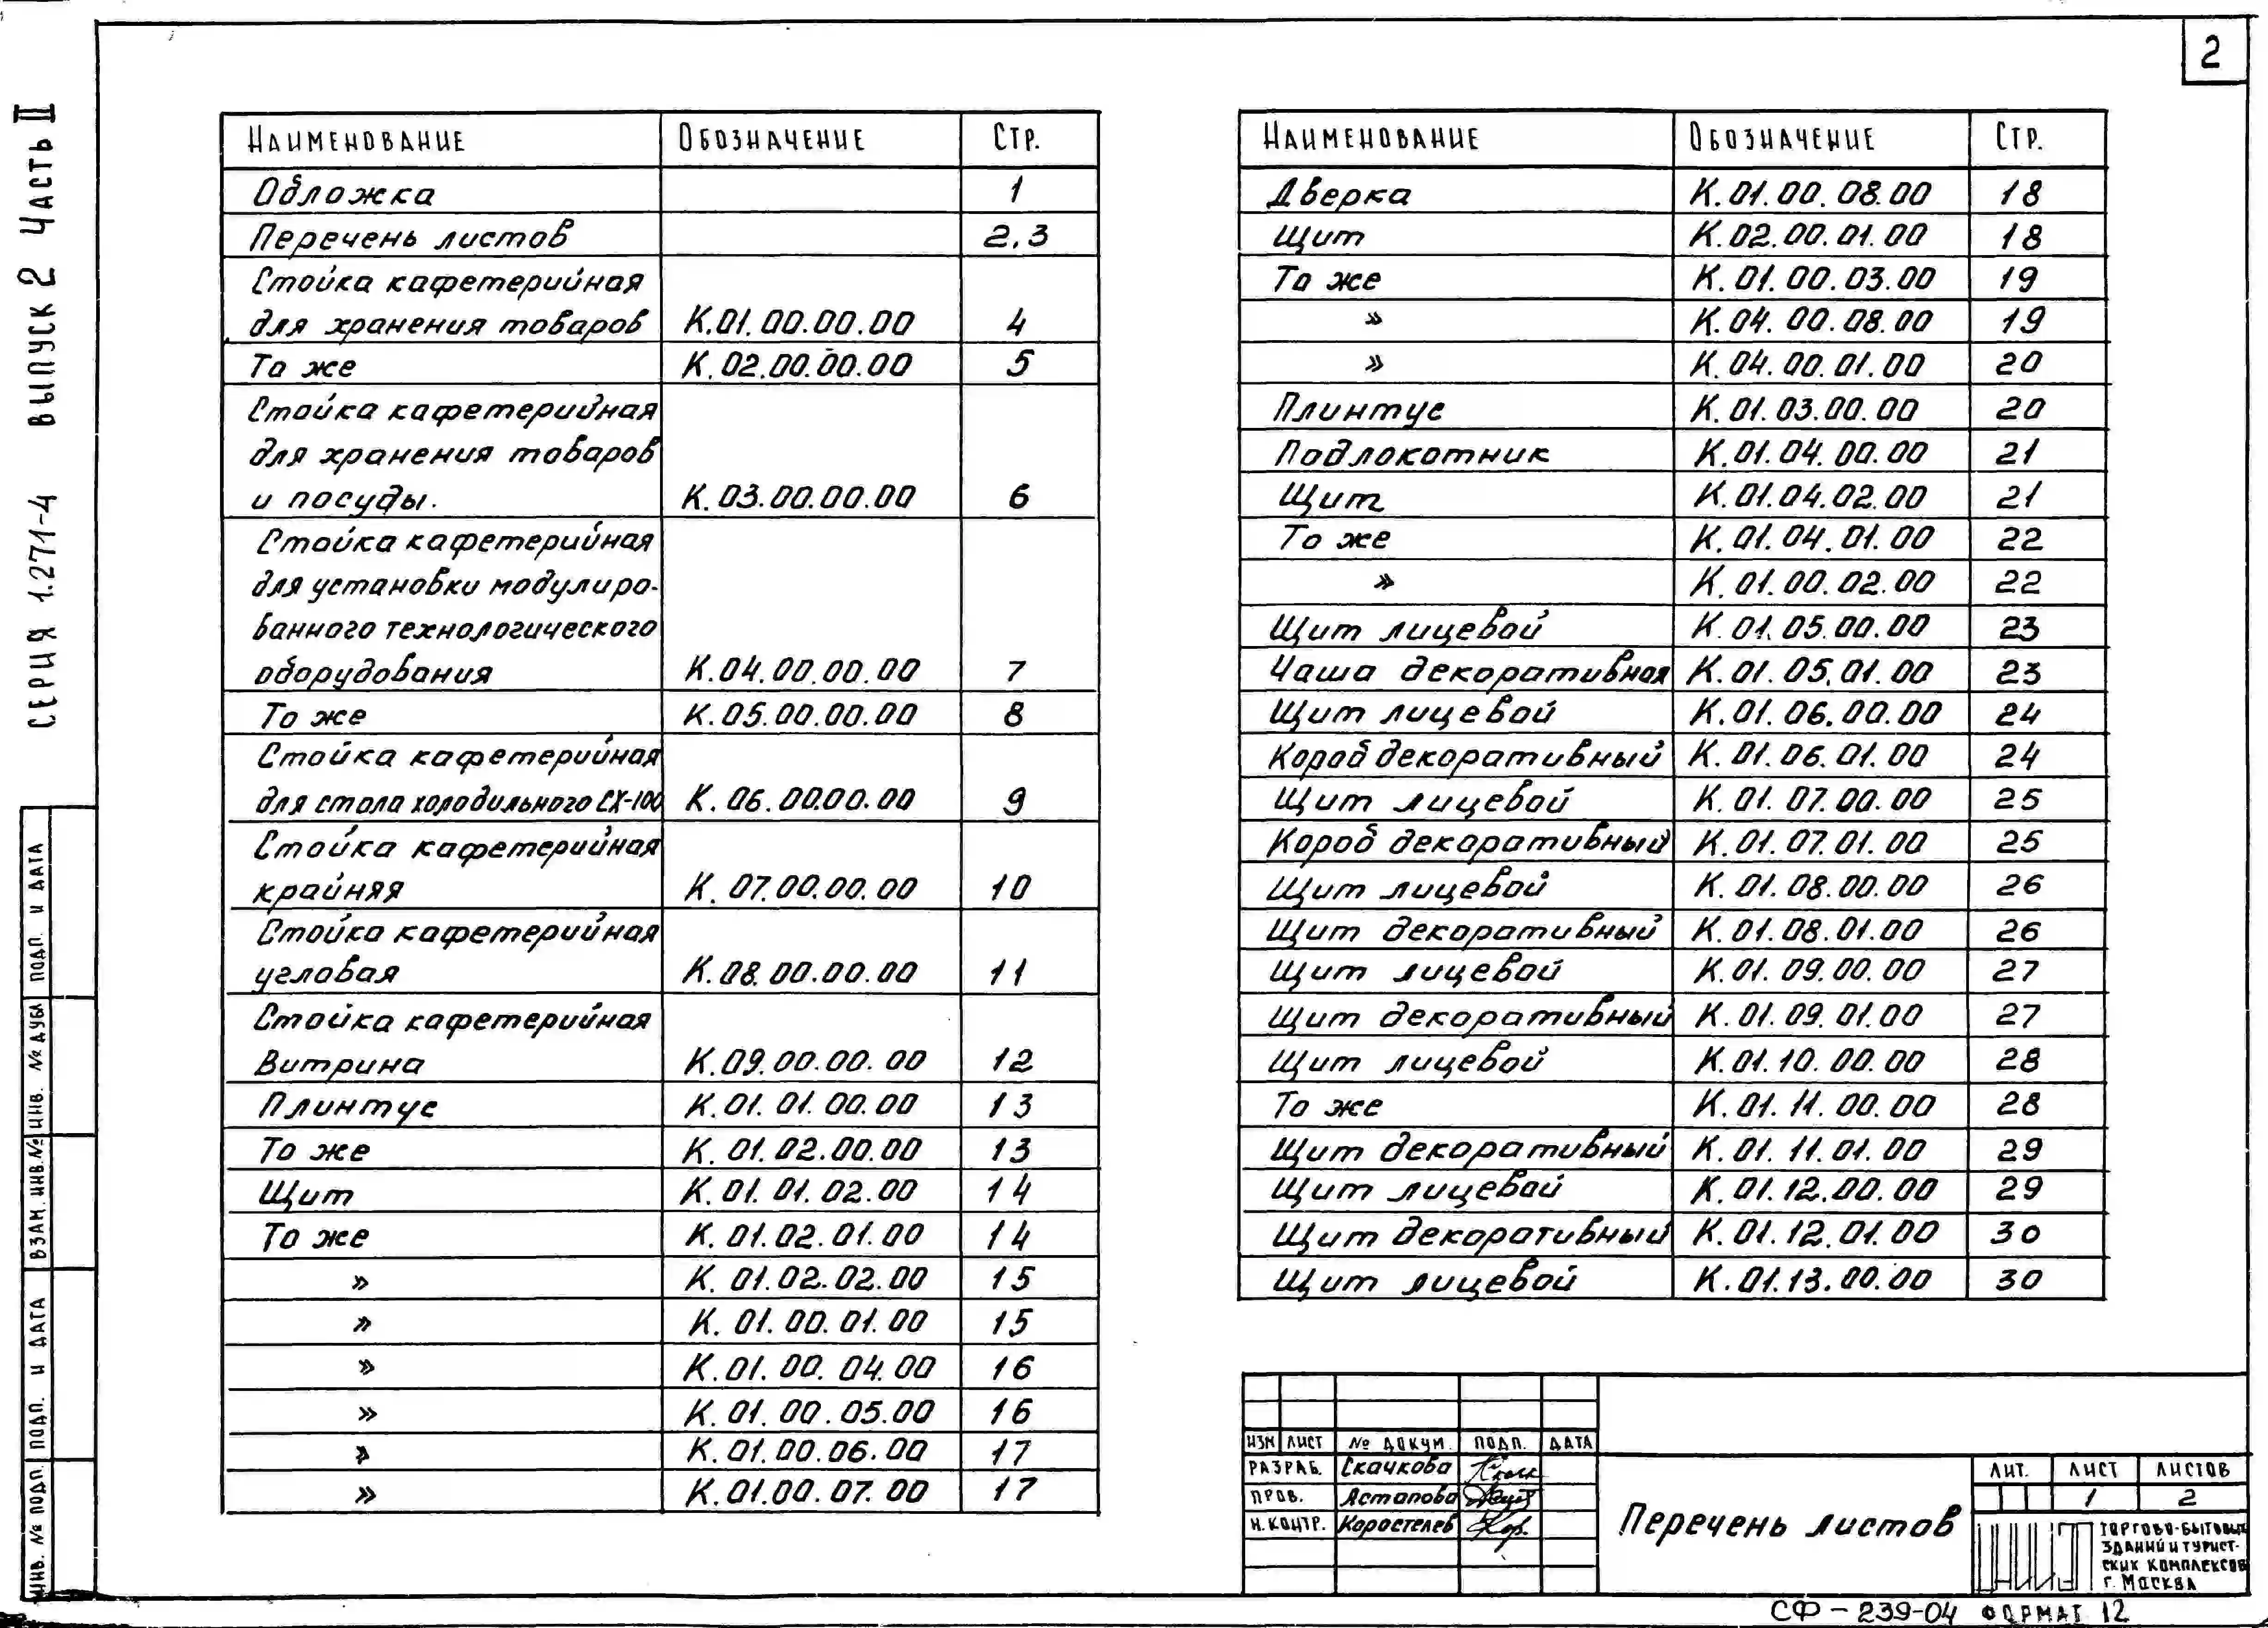 2
СЕРИЯ 1.271-4 ВЫПУСК 2 ЧАСТЬ II
НАИМЕНОВАНИЕ ОБОЗНАЧЕНИЕ СТР.
Обложка 1
Перечень листов 2,3
Стойка кафетерийная
для хранения товаров К.01.00.00.00 4
То же К.02.00.00.00 5
Стойка кафетерийная
для хранения товаров
и посуды. К.03.00.00.00 6
Стойка кафетерийная
для установки модулиро-
ванного технологического
оборудования К.04.00.00.00 7
То же К.05.00.00.00 8
Стойка кафетерийная
для стола холодильного СХ-100 К.06.00.00.00 9
Стойка кафетерийная
крайняя К.07.00.00.00 10
Стойка кафетерийная
угловая К.08.00.00.00 11
Стойка кафетерийная
Витрина К.09.00.00.00 12
Плинтус К.01.01.00.00 13
То же К.01.02.00.00 13
Щит К.01.01.02.00 14
То же К.01.02.01.00 14
» К.01.02.02.00 15
» К.01.00.01.00 15
» К.01.00.04.00 16
» К.01.00.05.00 16
» К.01.00.06.00 17
» К.01.00.07.00 17
НАИМЕНОВАНИЕ ОБОЗНАЧЕНИЕ СТР.
Дверка К.01.00.08.00 18
Щит К.02.00.01.00 18
То же К.01.00.03.00 19
» К.04.00.08.00 19
» К.04.00.01.00 20
Плинтус К.01.03.00.00 20
Подлокотник К.01.04.00.00 21
Щит К.01.04.02.00 21
То же К.01.04.01.00 22
» К.01.00.02.00 22
Щит лицевой К.01.05.00.00 23
Чаша декоративная К.01.05.01.00 23
Щит лицевой К.01.06.00.00 24
Короб декоративный К.01.06.01.00 24
Щит лицевой К.01.07.00.00 25
Короб декоративный К.01.07.01.00 25
Щит лицевой К.01.08.00.00 26
Щит декоративный К.01.08.01.00 26
Щит лицевой К.01.09.00.00 27
Щит декоративный К.01.09.01.00 27
Щит лицевой К.01.10.00.00 28
То же К.01.11.00.00 28
Щит декоративный К.01.11.01.00 29
Щит лицевой К.01.12.00.00 29
Щит декоративный К.01.12.01.00 30
Щит лицевой К.01.13.00.00 30
ИНВ. № ПОДП. ПОДП. И ДАТА ВЗАМ. ИНВ.№ ИНВ. № ДУБЛ ПОДП. И ДАТА
ИЗМ ЛИСТ № ДОКУМ. ПОДП. ДАТА
РАЗРАБ. Скачкова
ПРОВ. Астапова
Н.КОНТР. Коростелев
Перечень листов
ЛИТ. ЛИСТ ЛИСТОВ
1 2
ЦНИИЭП
ТОРГОВО-БЫТОВЫХ
ЗДАНИЙ И ТУРИСТ-
СКИХ КОМПЛЕКСОВ
Г. МОСКВА
СФ-239-04 ФОРМАТ 12